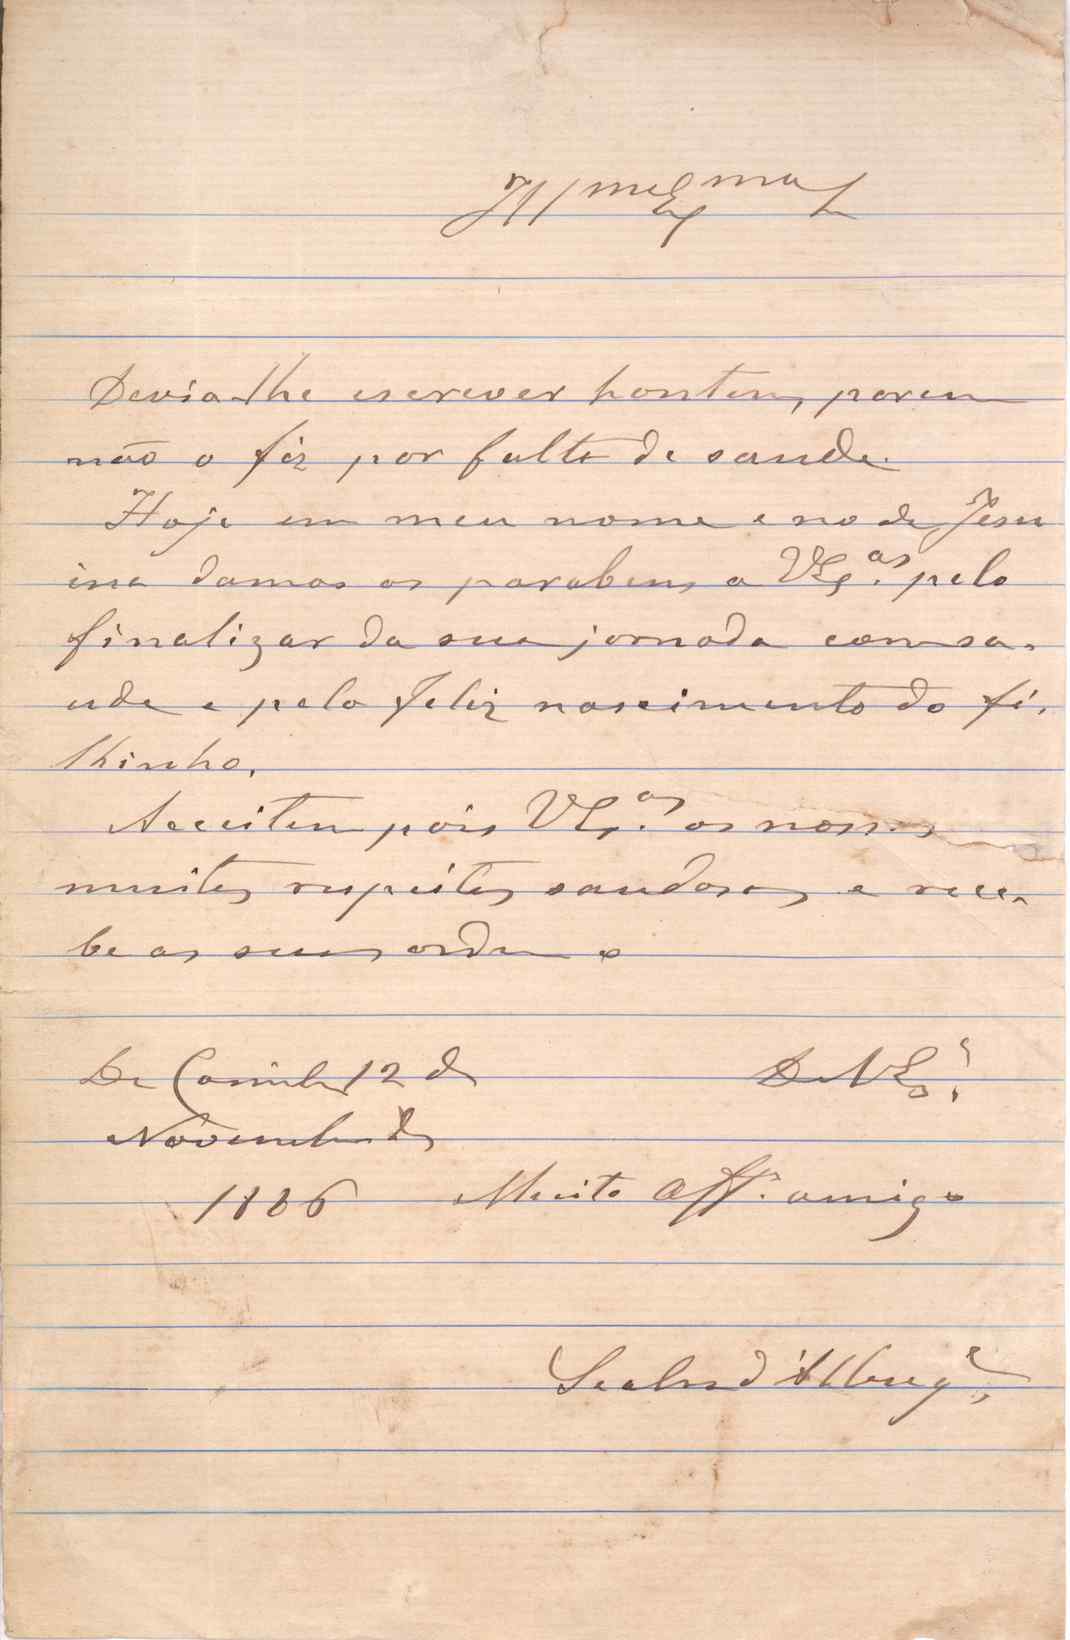 Ill.mo Ex.mo Sr.
Devia-lhe escrever hontem, porem
não o fiz por falta de saude.
Hoje em meu nome e no de Jesu
ina damos os parabens a VEx.as pelo
finalizar da sua jornada com sa-
ude e pelo feliz nascimento do fi-
lhinho.
Acceitem pois VEx.as os nossos
muitos respeitos saudosos e rece-
be as suas ordens
De 12 de
De VEx.
Novembro de
1886
Muito Aff. amigo